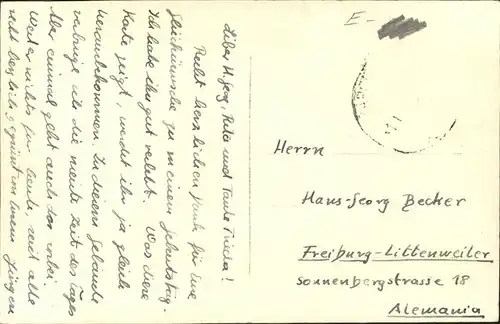 Lieber H. Jörg, Rita und Tante Tricia!
Recht herzlichen Dank für Eure
Glückwünsche zu meinem Geburtstag.
Ich habe ihn gut verlebt. Was diese
Karte zeigt, werdet ihr ja gleich
herausbekommen. In diesem Gebäude
verbringe ich die meiste Zeit des Tages
Aber einmal geht auch das vorbei.
Weiter nichts für heute, seid alle
recht herzlich gegrüsst von Eurem Jürgen
E-
Herrn
Hans-Georg Becker
Freiburg-Littenweiler
Sonnenbergstrasse 18
Alemania